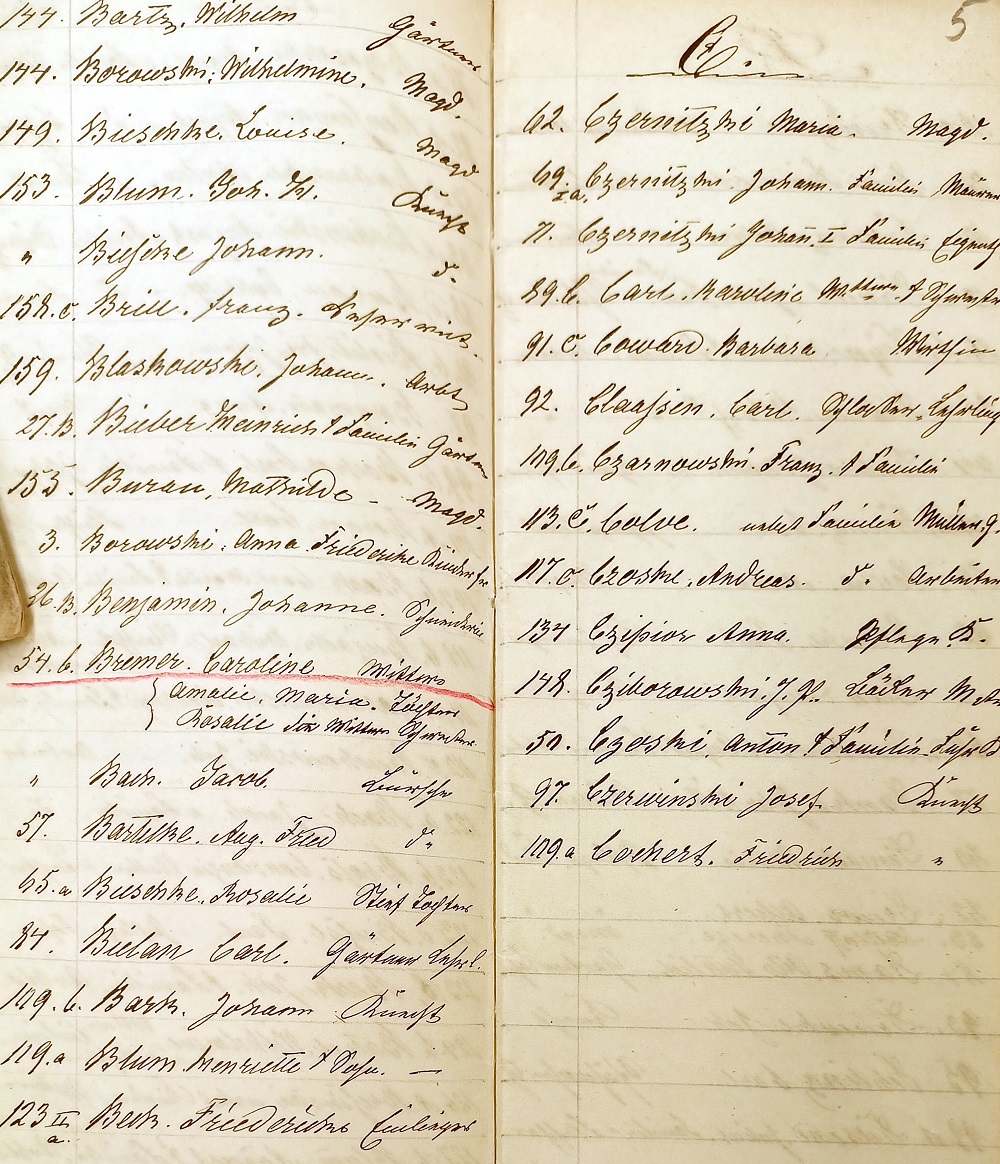 144. Bartz, Wilhelm Gärtner
144. Borowski, Wilhelmine. Magd.
149. Bieschke. Louise. Magd
153. Blum. Joh. Knecht
" Bieschke Johann. d.
158.c. Brill. Franz.
159. Blaskowski. Johann. Arbt
27.B. Bieber Heinrich & Familie Gärtner
155. Burau, Mathilde - Magd.
3. Borowski. Anna Friederike
26.B. Benjamin. Johanne. Schneiderin
54.b. Bremer. Caroline Wittwe
{ Amalie. Maria. Töchter
Rosalie der Wittwe Schwester
" Bach. Jacob. Bursche
57. Bartelke. Aug. Fried d"
65.a Bieschke. Rosalie Stief Tochter
84. Bielan Carl. Gärtner Lehrl.
109.b. Bark. Johann Knecht
119.a Blum. Henriette & Sohn. —
123 II a. Beck. Friederike
5
C
62. Czernitzki Maria. Magd.
69. I a. Czernitzki. Johann. Familie Maurer
71. Czernitzki Johañ I Familie Eigenth
89.b. Carl. Karoline Wittwe & Schwester
91.c. Coward. Barbara Wirthin
92. Claassen. Carl. Schlosser-Lehrling
109.b. Czarnowski. Franz. & Familie
113.c. Colve. nebst Familie Müller.G
117.c Czoske. Andreas. d. Arbeiter
134 Anna. Pflege K.
148. Cziborowski. J. P. Bäcker
50. Czoski. Anton & Familie
97. Czerwinski Josef. Knecht
109.a Cochert. Friedrich "